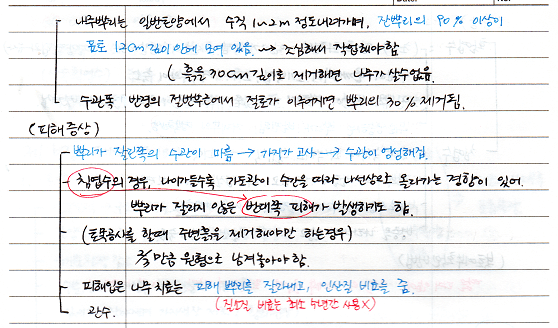 나무뿌리는 일반토양에서 수직 1~2m 정도내려가며, 잔뿌리의 90% 이상이
표토 12cm 깊이 안에 모여 있음. → 조심해서 작업해야함
( 흙을 30cm 깊이로 제거하면 나무가 살수없음.
수관폭 반경의 절반부근에서 절토가 이루어지면 뿌리의 30% 제거됨.
(피해증상)
뿌리가 잘린쪽의 수관이 마름 → 가지가 고사 → 수관이 엉성해짐.
침엽수의 경우, 나이가들수록 가도관이 수간을 따라 나선상으로 올라가는 경향이 있어.
뿌리가 잘리지 않은 반대쪽 피해가 발생하기도 함.
(토목공사를 할때 수변흙을 제거해야만 하는경우)
만큼 원형으로 남겨놓아야 함.
피해입은 나무 치료는 피해 뿌리를 잘라내고, 인산질 비료를 줌.
관수. (질소질 비료는 최소 수년간 사용X)